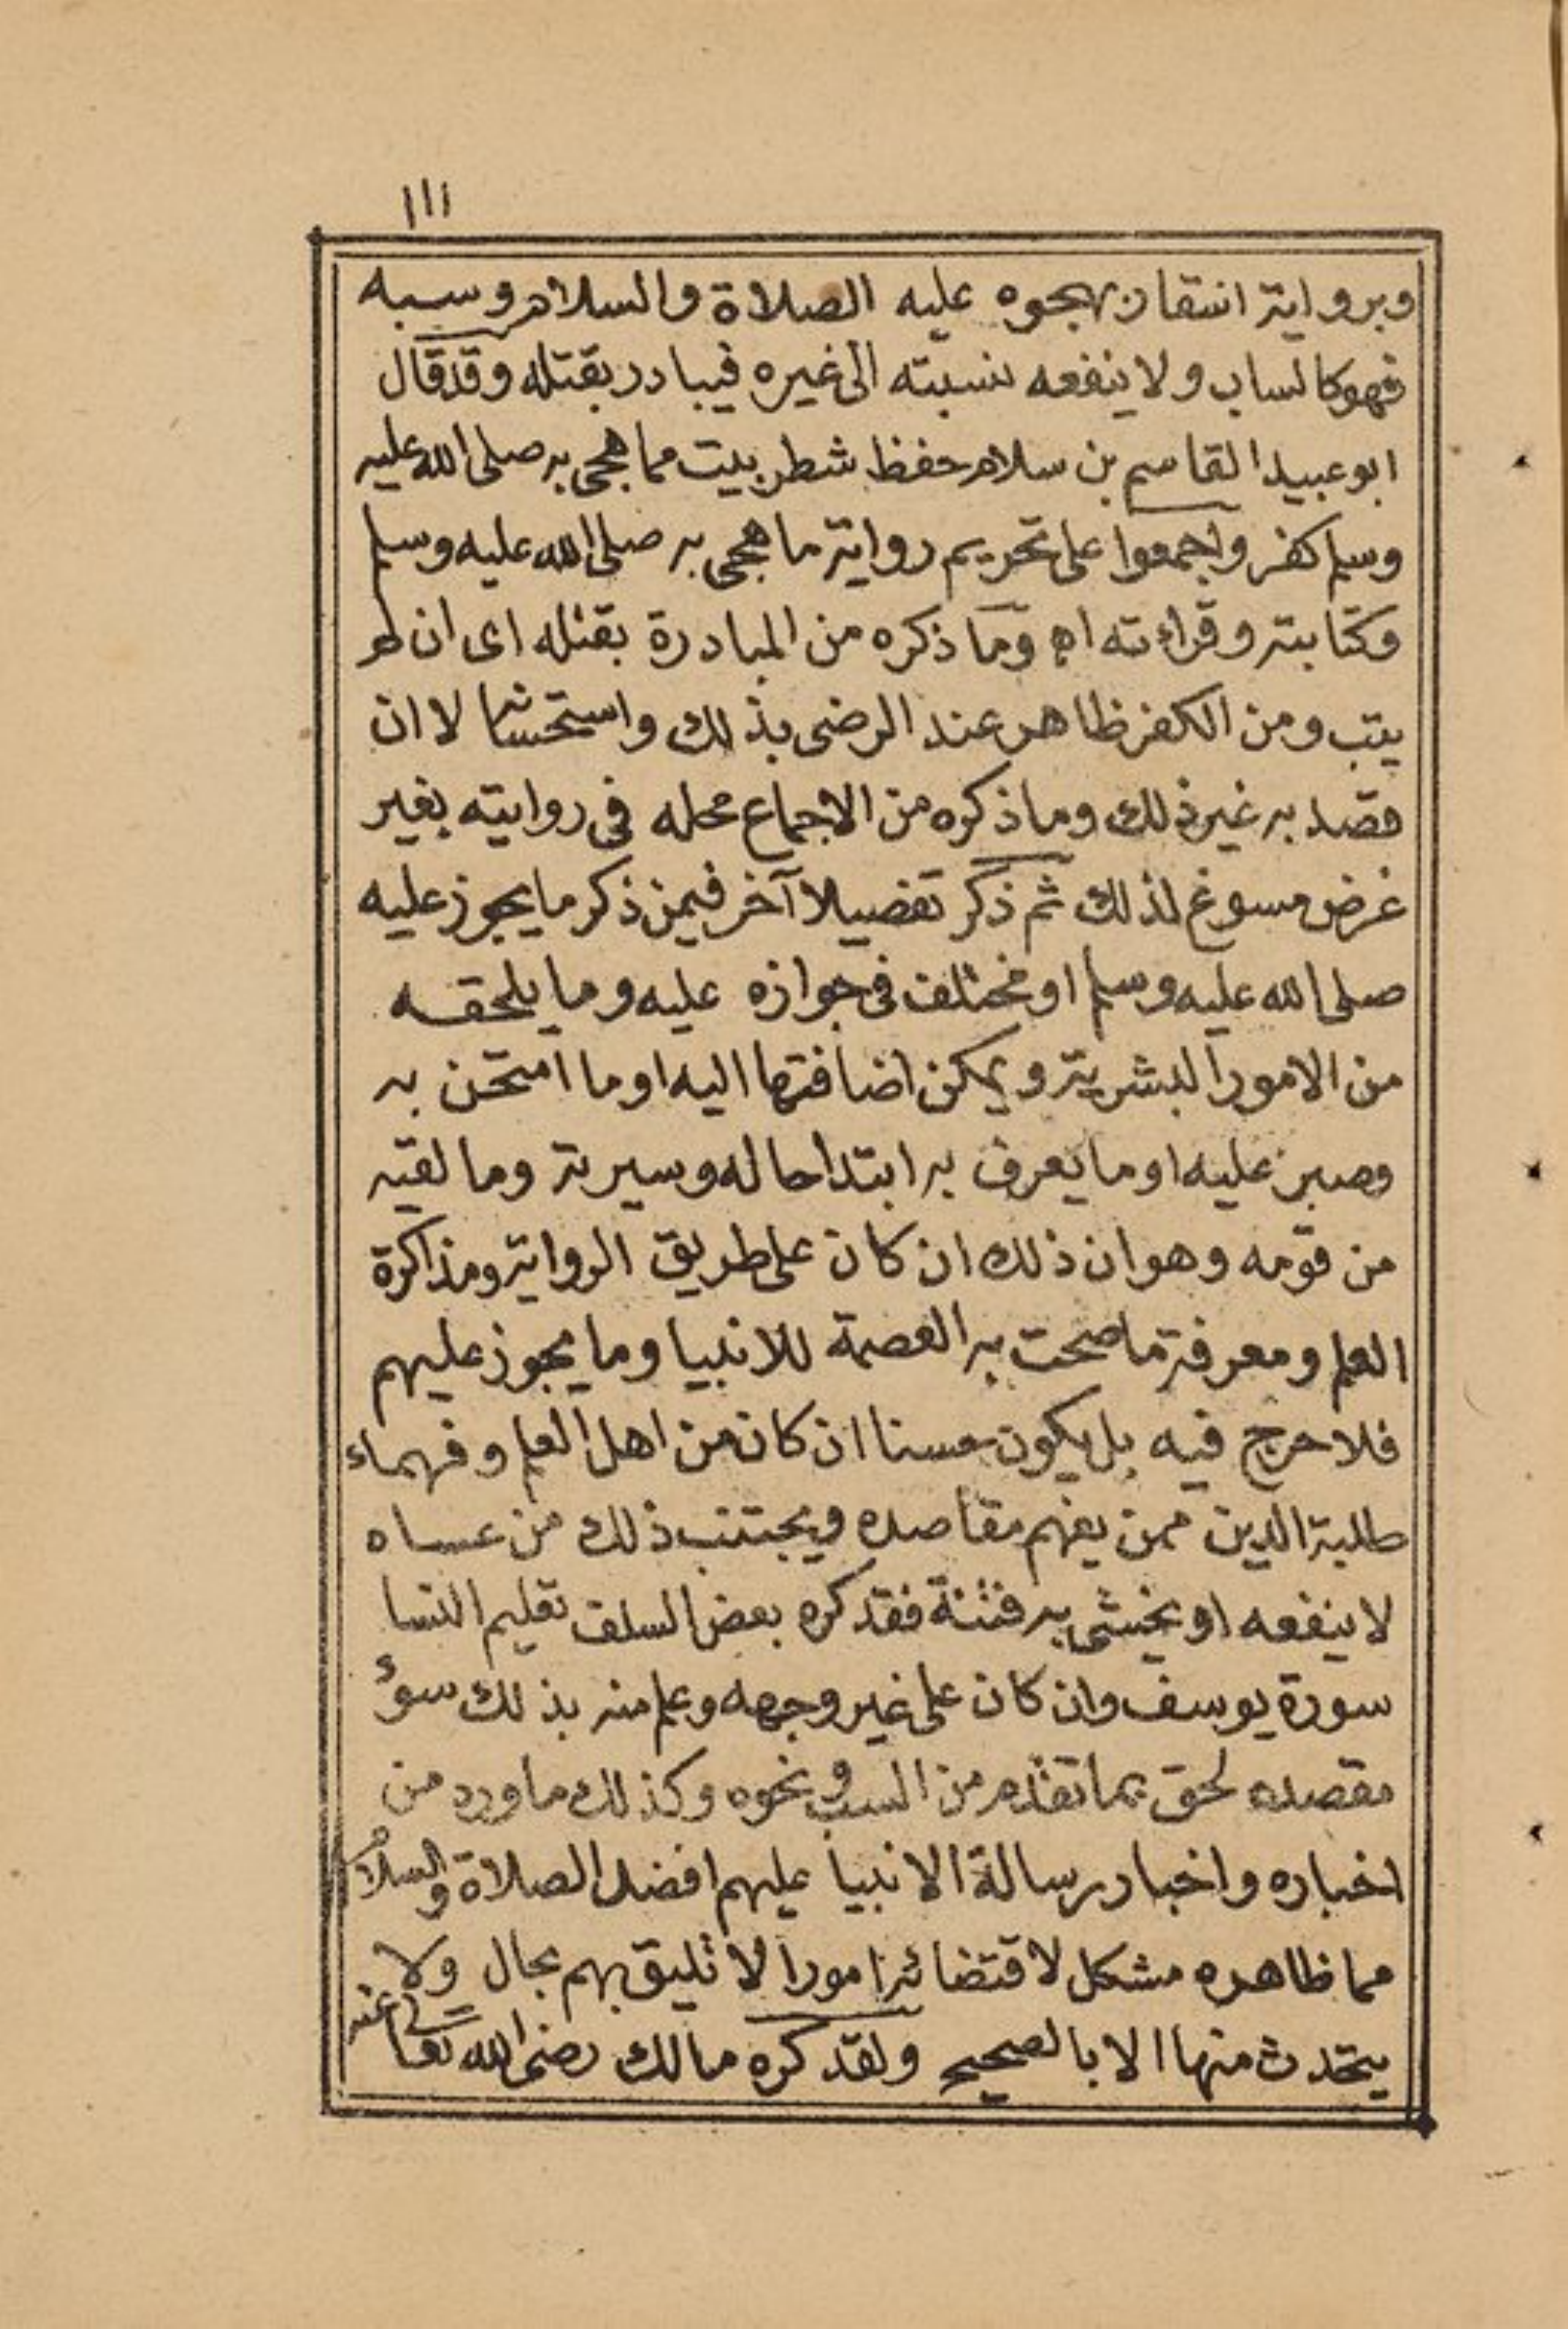 ١١١
وبرواية انتقاد بهجوه عليه الصلاة والسلام وسبه
فهو كالساب ولا ينفعه نسبته الى غيره فيبادر بقتله وقد قال
ابو عبيد القاسم بن سلام حفظ شطر بيت مما هجى به صلى الله عليه
وسلم كفر واجمعوا على تحريم رواية ما هجى به صلى الله عليه وسلم
وكتابته وقراءته اه وما ذكره من المبادرة بقتله اى ان لم
يتب ومن الكفر ظاهر عند الرضى بذلك واستحسانه لا ان
قصد به غير ذلك وما ذكره من الاجماع محله فى روايته بغير
غرض مسوغ لذلك ثم ذكر تفصيلا آخر فيمن ذكر ما يجوز عليه
صلى الله عليه وسلم او مختلف فى جوازه عليه وما يلحقه
من الامور البشرية ويمكن اضافتها اليه او ما امتحن به
وصبر عليه او ما يعرف به ابتدا حاله وسيرته وما لقيه
من قومه وهو ان ذلك ان كان على طريق الرواية ومذاكرة
العلم ومعرفة ما صحت به العصمة للانبيا وما يجوز عليهم
فلا حرج فيه بل يكون حسنا ان كان من اهل العلم وفهماء
طلبة الدين ممن يفهم مقاصده ويجتنب ذلك من عساه
لا ينفعه او يخشى به فتنة فقد كره بعض السلف تعليم النسا
سورة يوسف وان كان على غير وجهه وعلم منه بذلك سوؤ
مقصده لحق بما تقدم من السب ونحوه وكذلك ما ورد من
اخباره واخبار رسالة الانبيا عليهم افضل الصلاة والسلام
مما ظاهره مشكل لاقتضائه امورا لا تليق بهم بحال ولا
يتحدث منها الا بالصحيح ولقد كره مالك رضى الله تعالى عنه